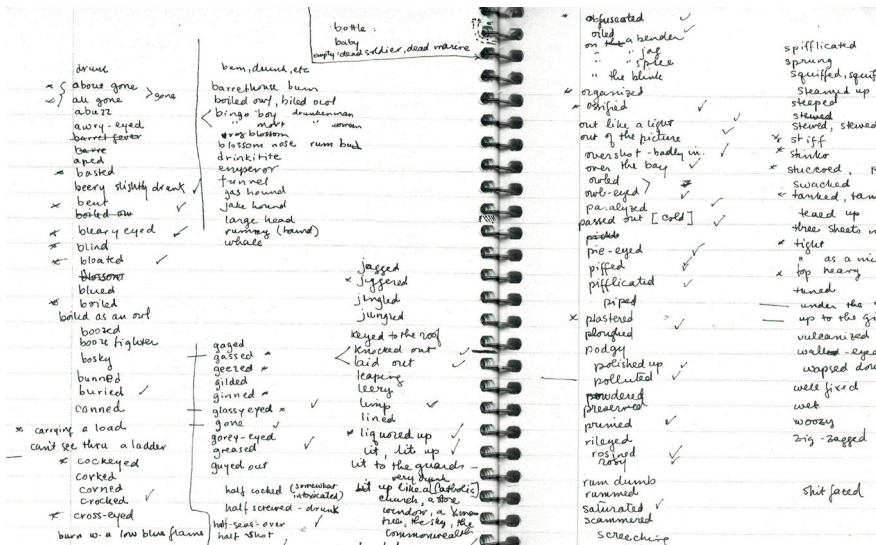 bottle:
baby
empty: dead soldier, dead marine
drunk
about gone
all gone
gone
abuzz
awry-eyed
barrel fever
barre
aped
basted
beery slightly drunk
bent
boiled ow
bleary eyed
blind
bloated
blossom
blued
boiled
boiled as an owl
boozed
booze fighter
bosky
bunned
buried
canned
carrying a load
can't see thru a ladder
cockeyed
corked
corned
crocked
cross-eyed
burn w. a low blue flame
bum, drunk, etc
barrelhouse bum
boiled owl, biled owl
bingo boy drunken man
" mort " woman
grog blossom
blossom nose rum bud
drinkitite
emperor
funnel
gas hound
jake hound
large head
rummy (hound)
whale
gaged
gassed
geezed
gilded
ginned
glassy eyed
gone
gorey-eyed
greased
guyed out
half cocked (somewhat intoxicated)
half screwed - drunk
half-seas-over
half shot
jagged
jiggered
jingled
jungled
keyed to the roof
knocked out
laid out
leaping
leery
limp
lined
liquored up
lit, lit up
lit to the guards -
very drunk
lit up like a [Catholic]
church, a store
window, a Xmas
tree, the sky, the
commonwealth
obfuscated
oiled
on the a bender
" " jag
" " spree
" the blink
organized
ossified
out like a light
out of the picture
overshot - badly in.
over the bay
owled
owl-eyed
paralyzed
passed out [cold]
pie-eyed
piffed
pifflicated
piped
plastered
ploughed
podgy
polished up
polluted
powdered
preserved
primed
rileyed
rosined
rosy
rum dumb
rummed
saturated
scammered
screeching
spifflicated
sprung
squiffed, squif
steamed up
steeped
stewed
stewed, stewed
stiff
stinko
stuccoed,
swacked
tanked, tan
teaed up
three sheets in
tight
" as a mi
top heavy
tuned
under the
up to the gi
vulcanized
walled-eye
wapsed dow
well fixed
wet
woozy
zig-zagged
shit faced